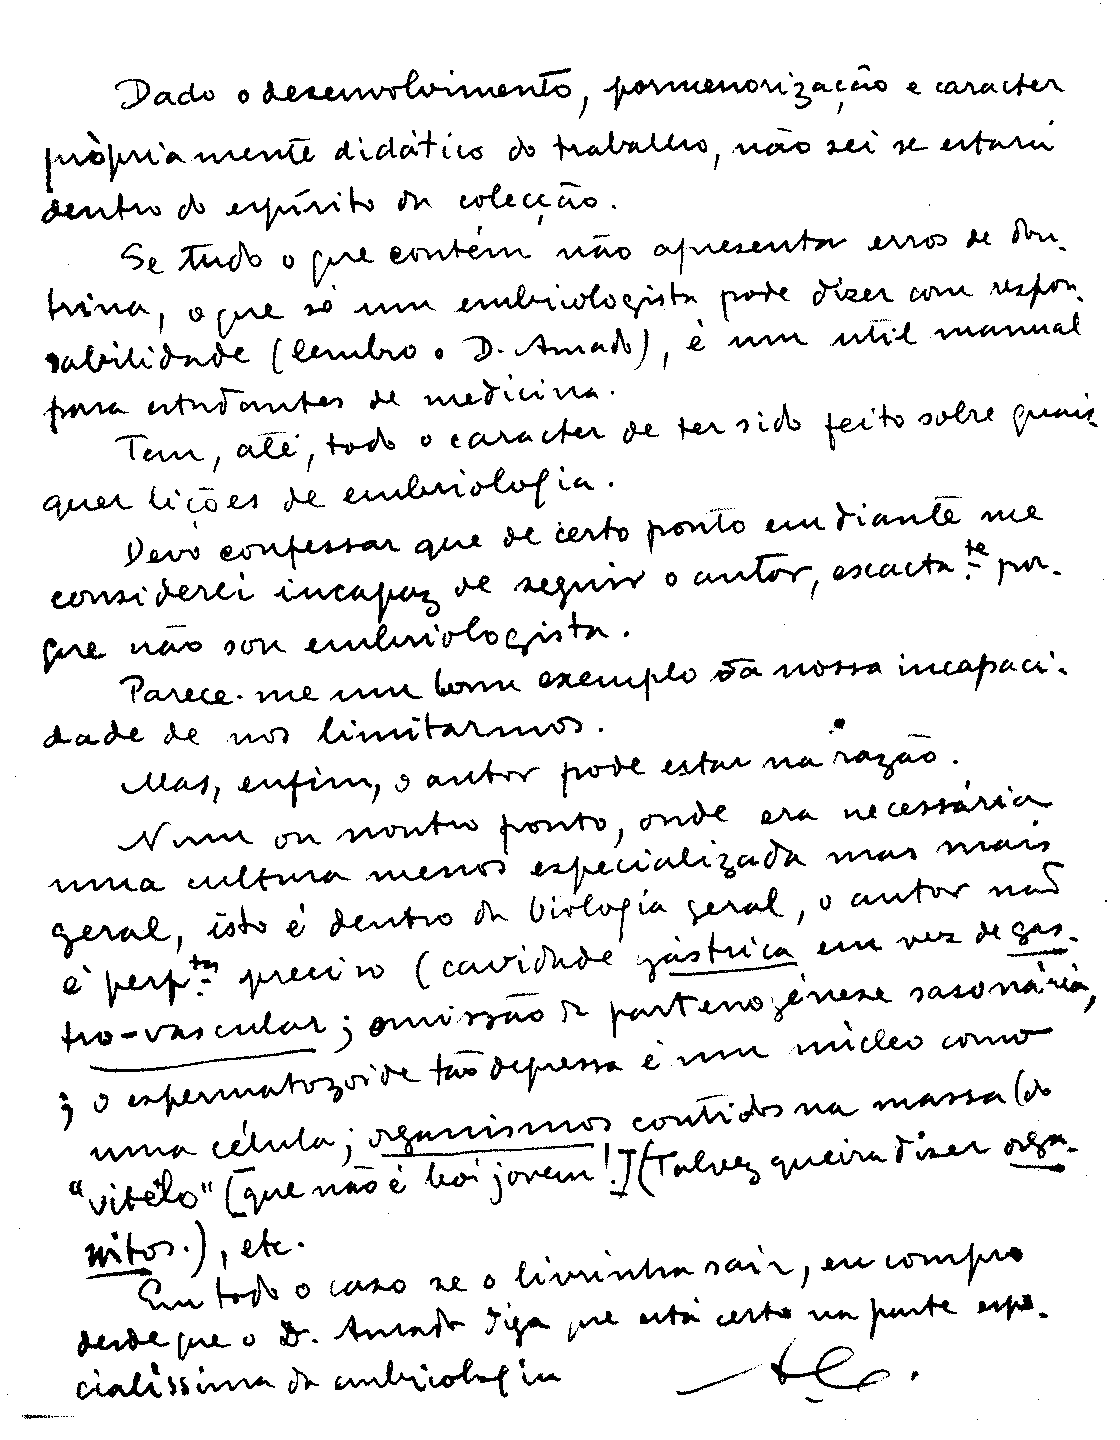 Dado o desenvolvimento, pormenorização e caracter
pròpriamente didático do trabalho, não sei se estará
dentro do espírito da colecção.
Se tudo o que contém não apresenta erros de dou-
trina, o que só um embriologista pode dizer com respon-
sabilidade (lembro o D. Amado), é um util manual
para estudantes de medicina.
Tem, até, todo o caracter de ter sido feito sobre quais-
quer lições de embriologia.
Devo confessar que de certo ponto em diante me
considerei incapaz de seguir o autor, exacta.te por-
que não sou embriologista.
Parece-me um bom exemplo da nossa incapaci-
dade de nos limitarmos.
Mas, enfim, o autor pode estar na razão.
Num ou noutro ponto, onde era necessária
uma cultura menos especializada mas mais
geral, isto é dentro da biologia geral, o autor não
é perf.te preciso (cavidade gástrica em vez de gas-
tro-vascular; omissão da partenogénese sasonária,
; o espermatozoide tão depressa é um núcleo como
uma célula; organismos contidos na massa (do
"vitélo" [que não é boi jovem!] (Talvez queira dizer orga-
nitos.), etc.
Em todo o caso se o livrinho sair, eu compro
desde que o D. Amado diga que está certo na parte espe-
cialíssima da embriologia